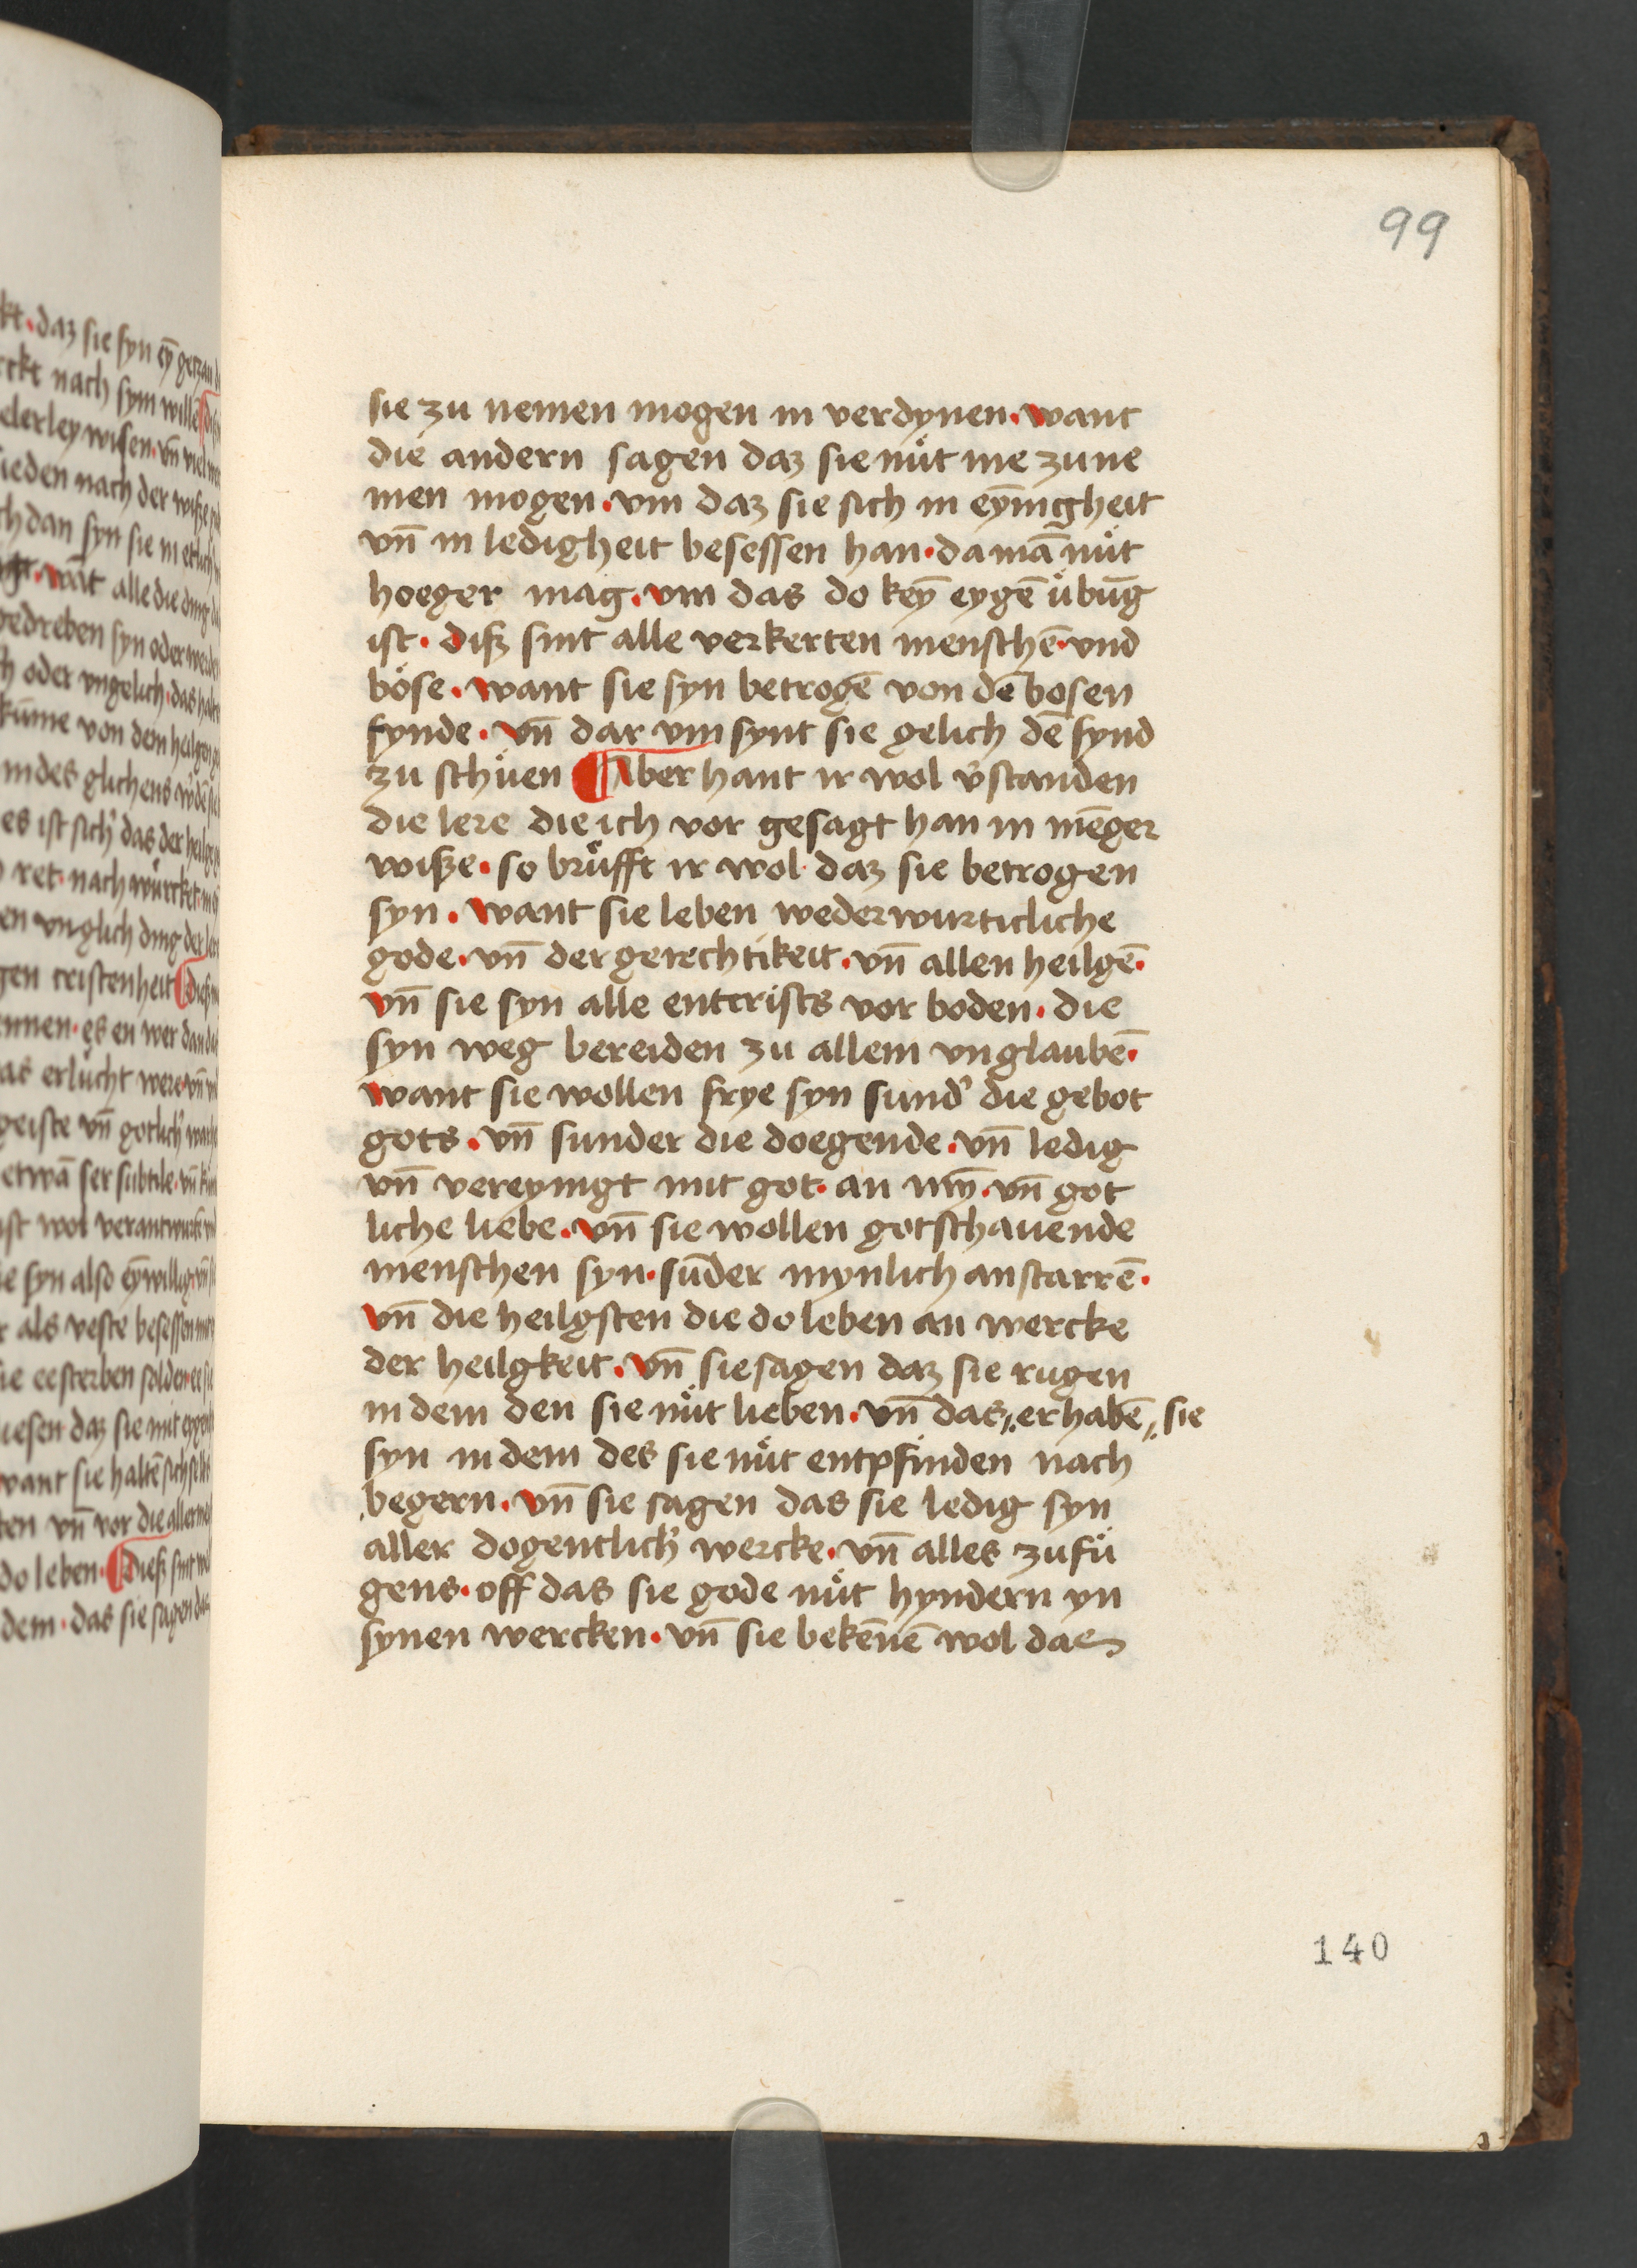 99
sie zu nemen mogen in verdynen · want
die andern sagen daz sie nuͤt me zu ne
men mogen · vm daz sie sich in eyn̄igheit
vn̄ in ledigheit besessen han · da man̄ nuͤt
hoeger mag · vm das do keȳ eygē uͤbūg
ist · diß sint alle verkerten menschē · vnd
boͤse · want sie syn betrogē von dē bosen
fynde · vn̄ dar vm synt sie gelich dē fynd
zu schuͤen ¶ Aber hant ir wol v̓standen
die lere die ich vor gesagt han in mēger
wiße · so bruͤfft ir wol · daz sie betrogen
syn · want sie leben wederwurticliche
gode · vn̄ der gerechtikeit · vn̄ allen heilgē ·
vn̄ sie syn alle entcrists vor boden · die
syn weg bereiden zu allem vnglaubē ·
want sie wollen frye syn sund̓ die gebot
gots · vn̄ sunder die doegende · vn̄ ledig
vn̄ vereynigt mit got · an mȳ · vn̄ got
liche liebe · vn̄ sie wollen gotschauende
menschen syn · sūder mynlich anstarrē ·
vn̄ die heilgsten die do leben an wercke
der heilgkeit · vn̄ sie sagen daz sie rugen
in dem den sie nuͤt lieben · vn̄ das ,,erhabē ,, sie
syn in dem des sie nuͤt entpfinden nach
begern · vn̄ sie sagen das sie ledig syn
aller dogentlich̓ wercke · vn̄ alles zufuͤ
gens · off das sie gode nuͤt hyndern yn
synen wercken · vn̄ sie bekēnē wol das
140